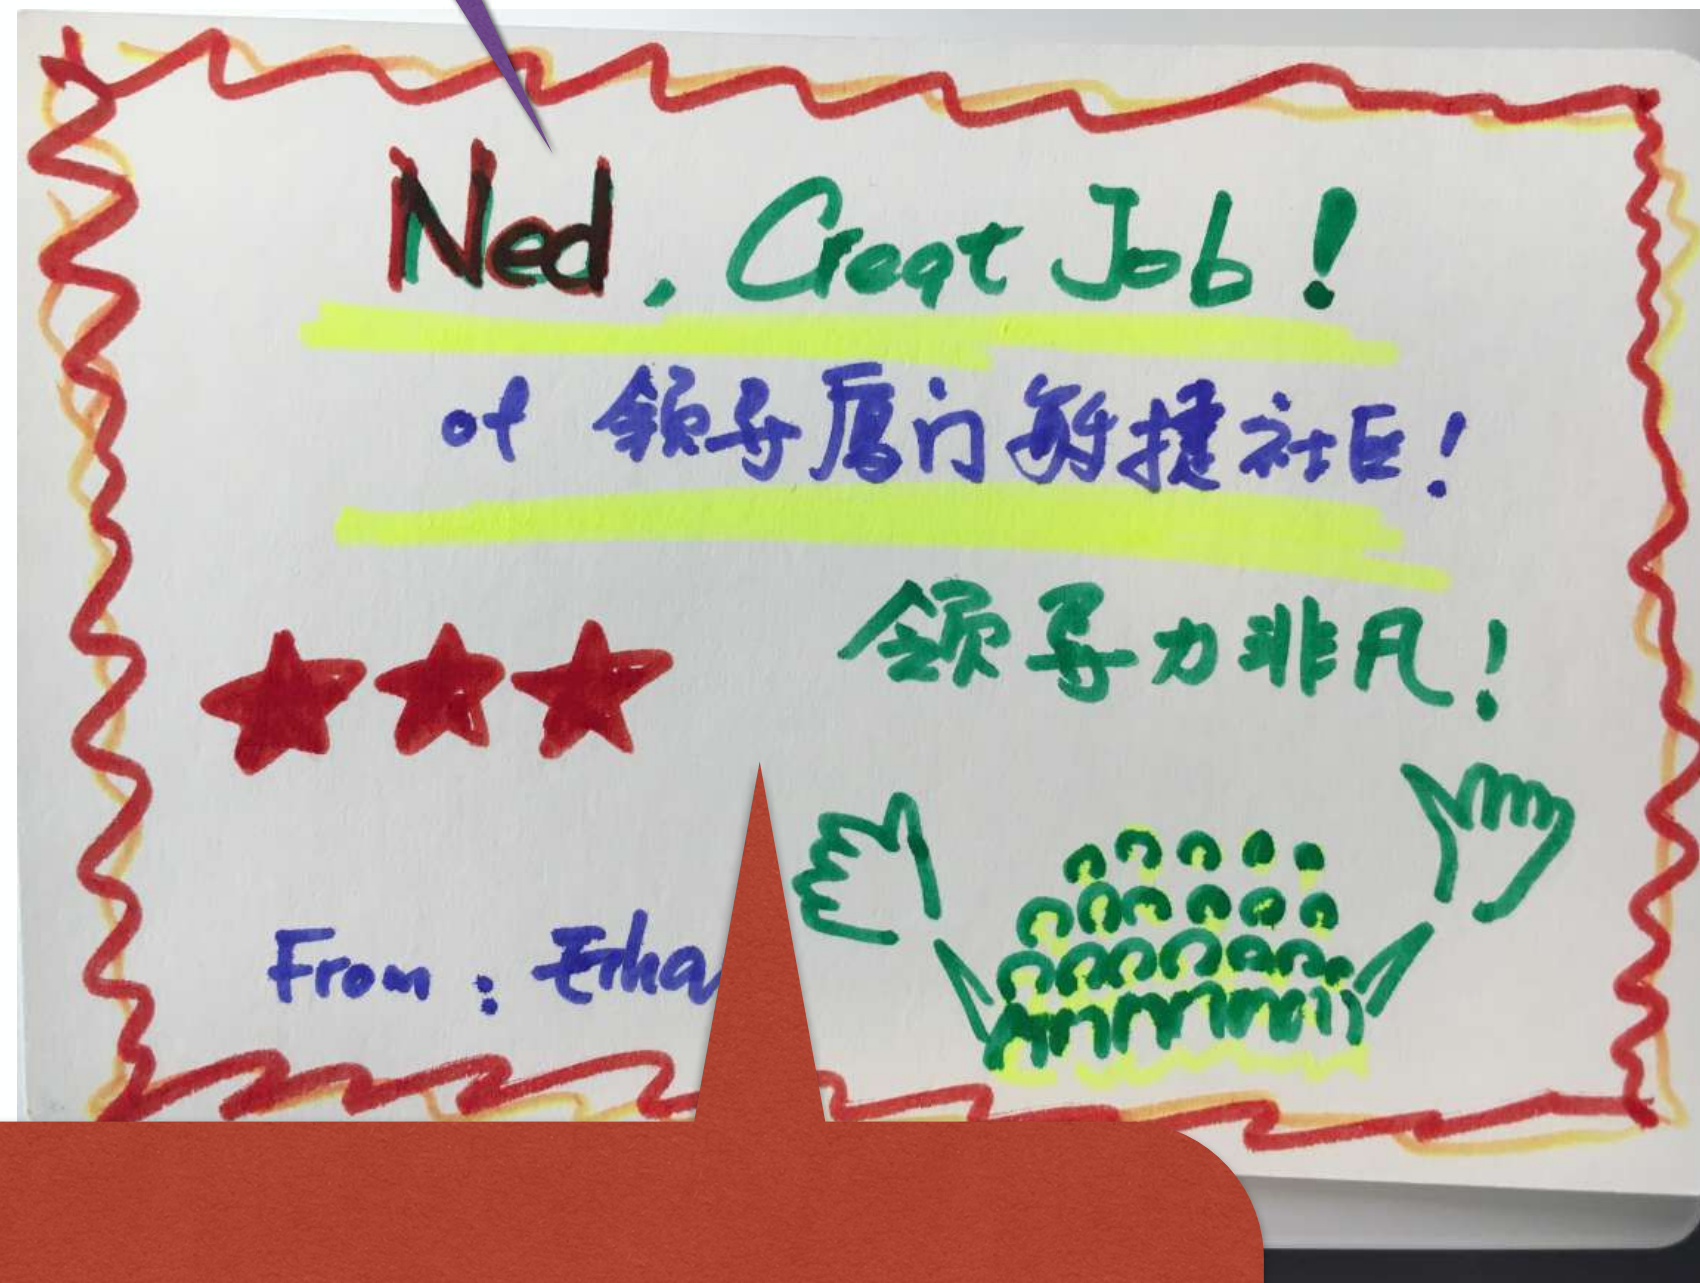 Ned, Great Job!
of 领导厦门敏捷社区!
领导力非凡!
From: Etha